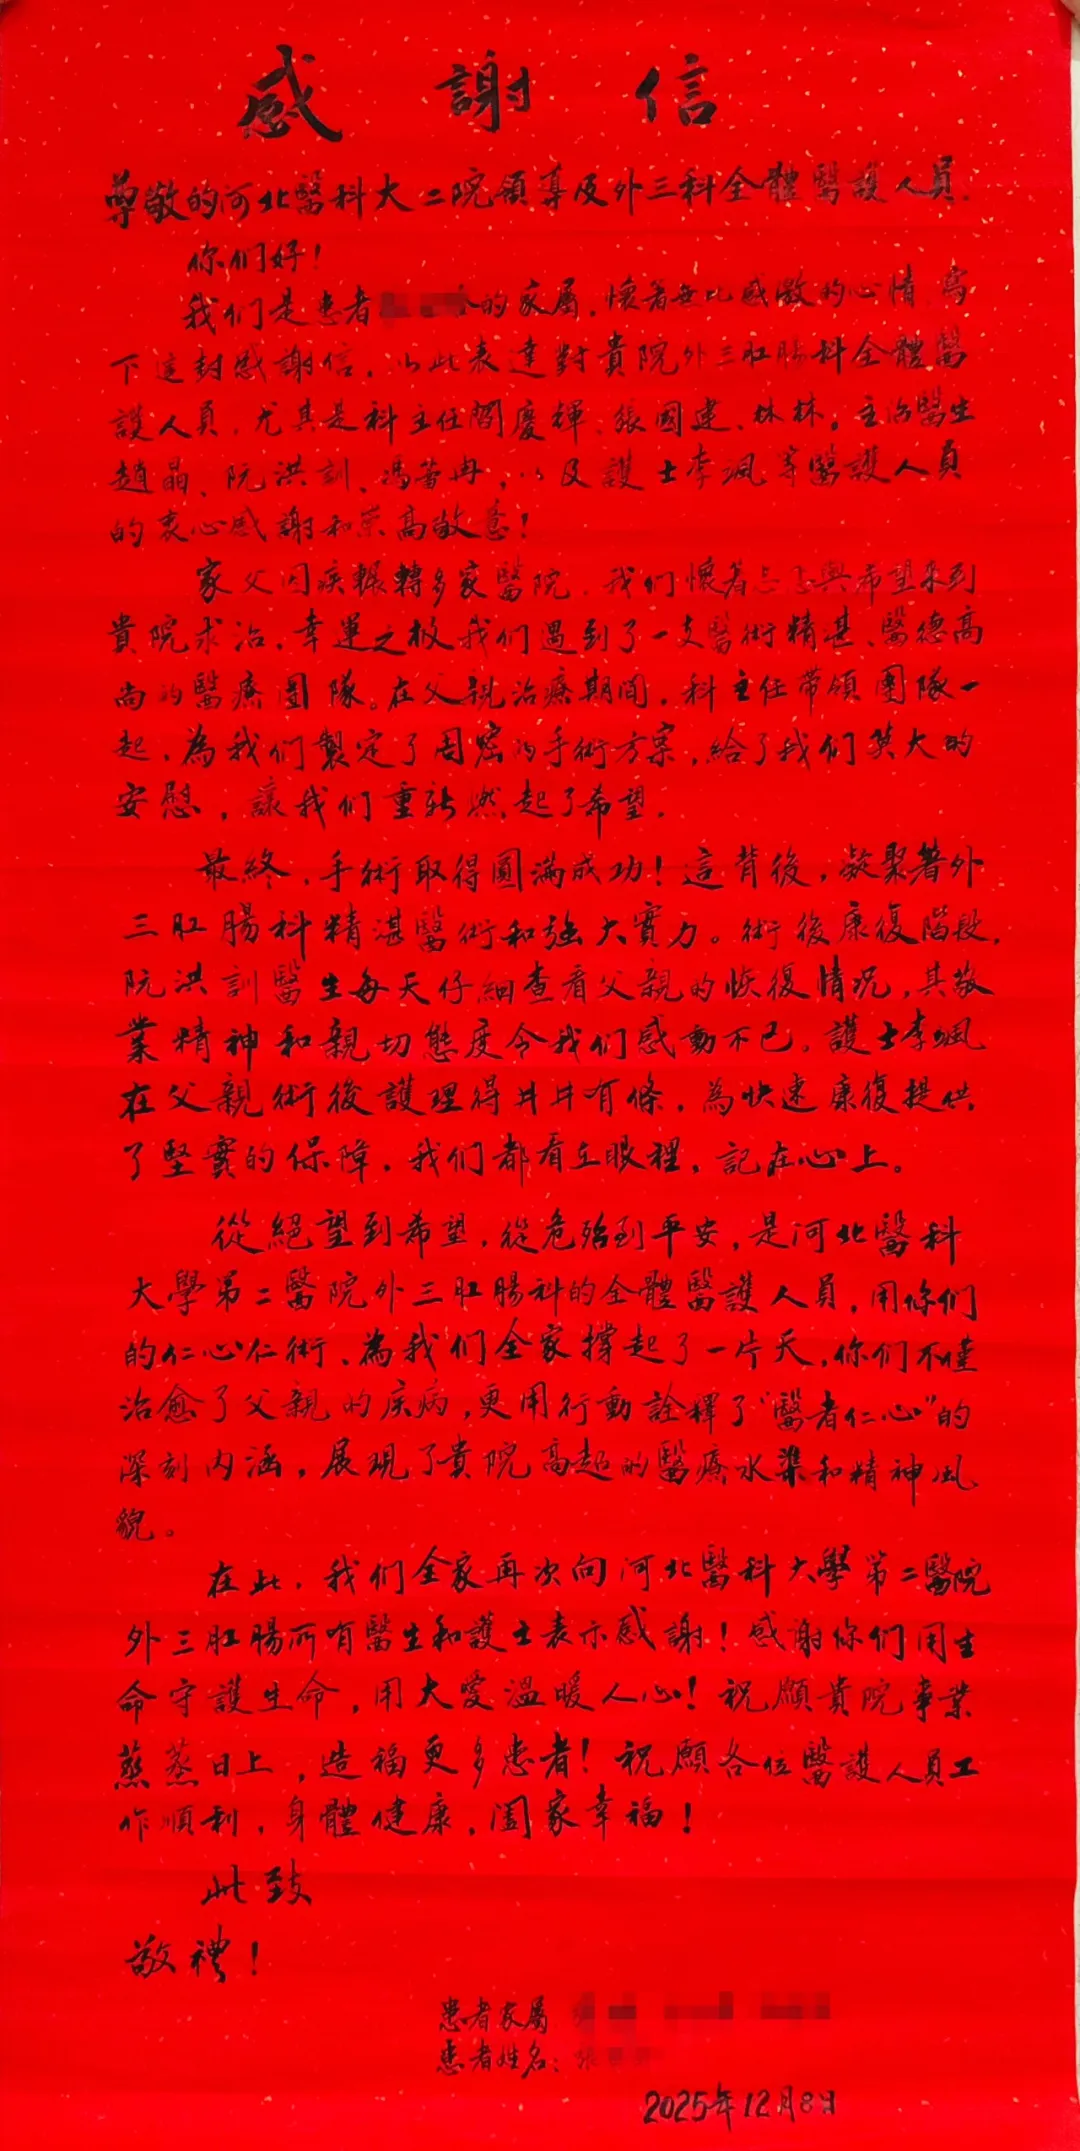 感謝信
尊敬的河北醫科大二院領導及外三科全體醫護人員.
你们好!
我们是患者 的家屬,懷着無比感激的心情,寫
下這封感謝信,以此表達對貴院外三肛腸科全體醫
護人員,尤其是科主任閻慶輝、張國建、林林。主治醫生
趙晶、阮洪訓、馮薔冉,以及護士李颯等醫護人員
的衷心感謝和崇高敬意!
家父因疾輾轉多家醫院,我们懷着忐忑與希望來到
貴院求治,幸運之极我们遇到了一支醫術精湛、醫德高
尚的醫療團隊。在父親治療期間,科主任带領團隊一
起,為我们製定了周密的手術方案,給了我们莫大的
安慰,讓我们重新燃起了希望.
最終,手術取得圓滿成功!這背後,凝聚著外
三肛腸科精湛醫術和強大實力。術後康復階段,
阮洪訓醫生每天仔細查看父親的恢復情況,其敬
業精神和親切態度令我们感動不已,護士李颯
在父親術後護理得井井有條,為快速康復提供
了堅實的保障,我们都看在眼裡,記在心上。
從絕望到希望,從危殆到平安,是河北醫科
大學第二醫院外三肛腸科的全體醫護人員,用你们
的仁心仁術,為我们全家撑起了一片天,你们不僅
治愈了父親的疾病,更用行動詮釋了“醫者仁心”的
深刻内涵,展現了貴院高超的醫療水準和精神風
貌。
在此,我们全家再次向河北醫科大學第二醫院
外三肛腸所有醫生和護士表示感謝!感謝你们用生
命守護生命,用大愛溫暖人心!祝願貴院事業
蒸蒸日上,造福更多患者!祝願各位醫護人員工
作順利,身體健康,闔家幸福!
此致
敬禮!
患者家屬
患者姓名:張
2025年12月8日